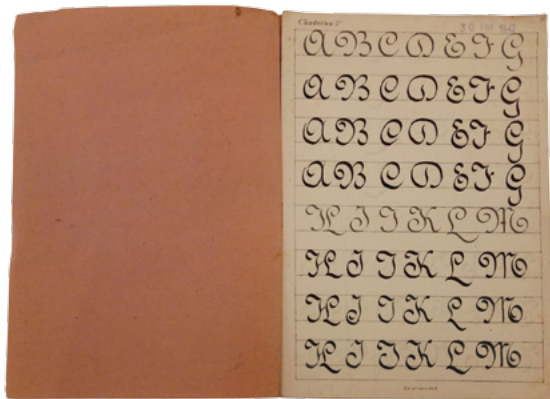 Cuaderno 2º
A B C D E F G
A B C D E F G
A B C D E F G
A B C D E F G
H I J K L M
H I J K L M
H I J K L M
H I J K L M